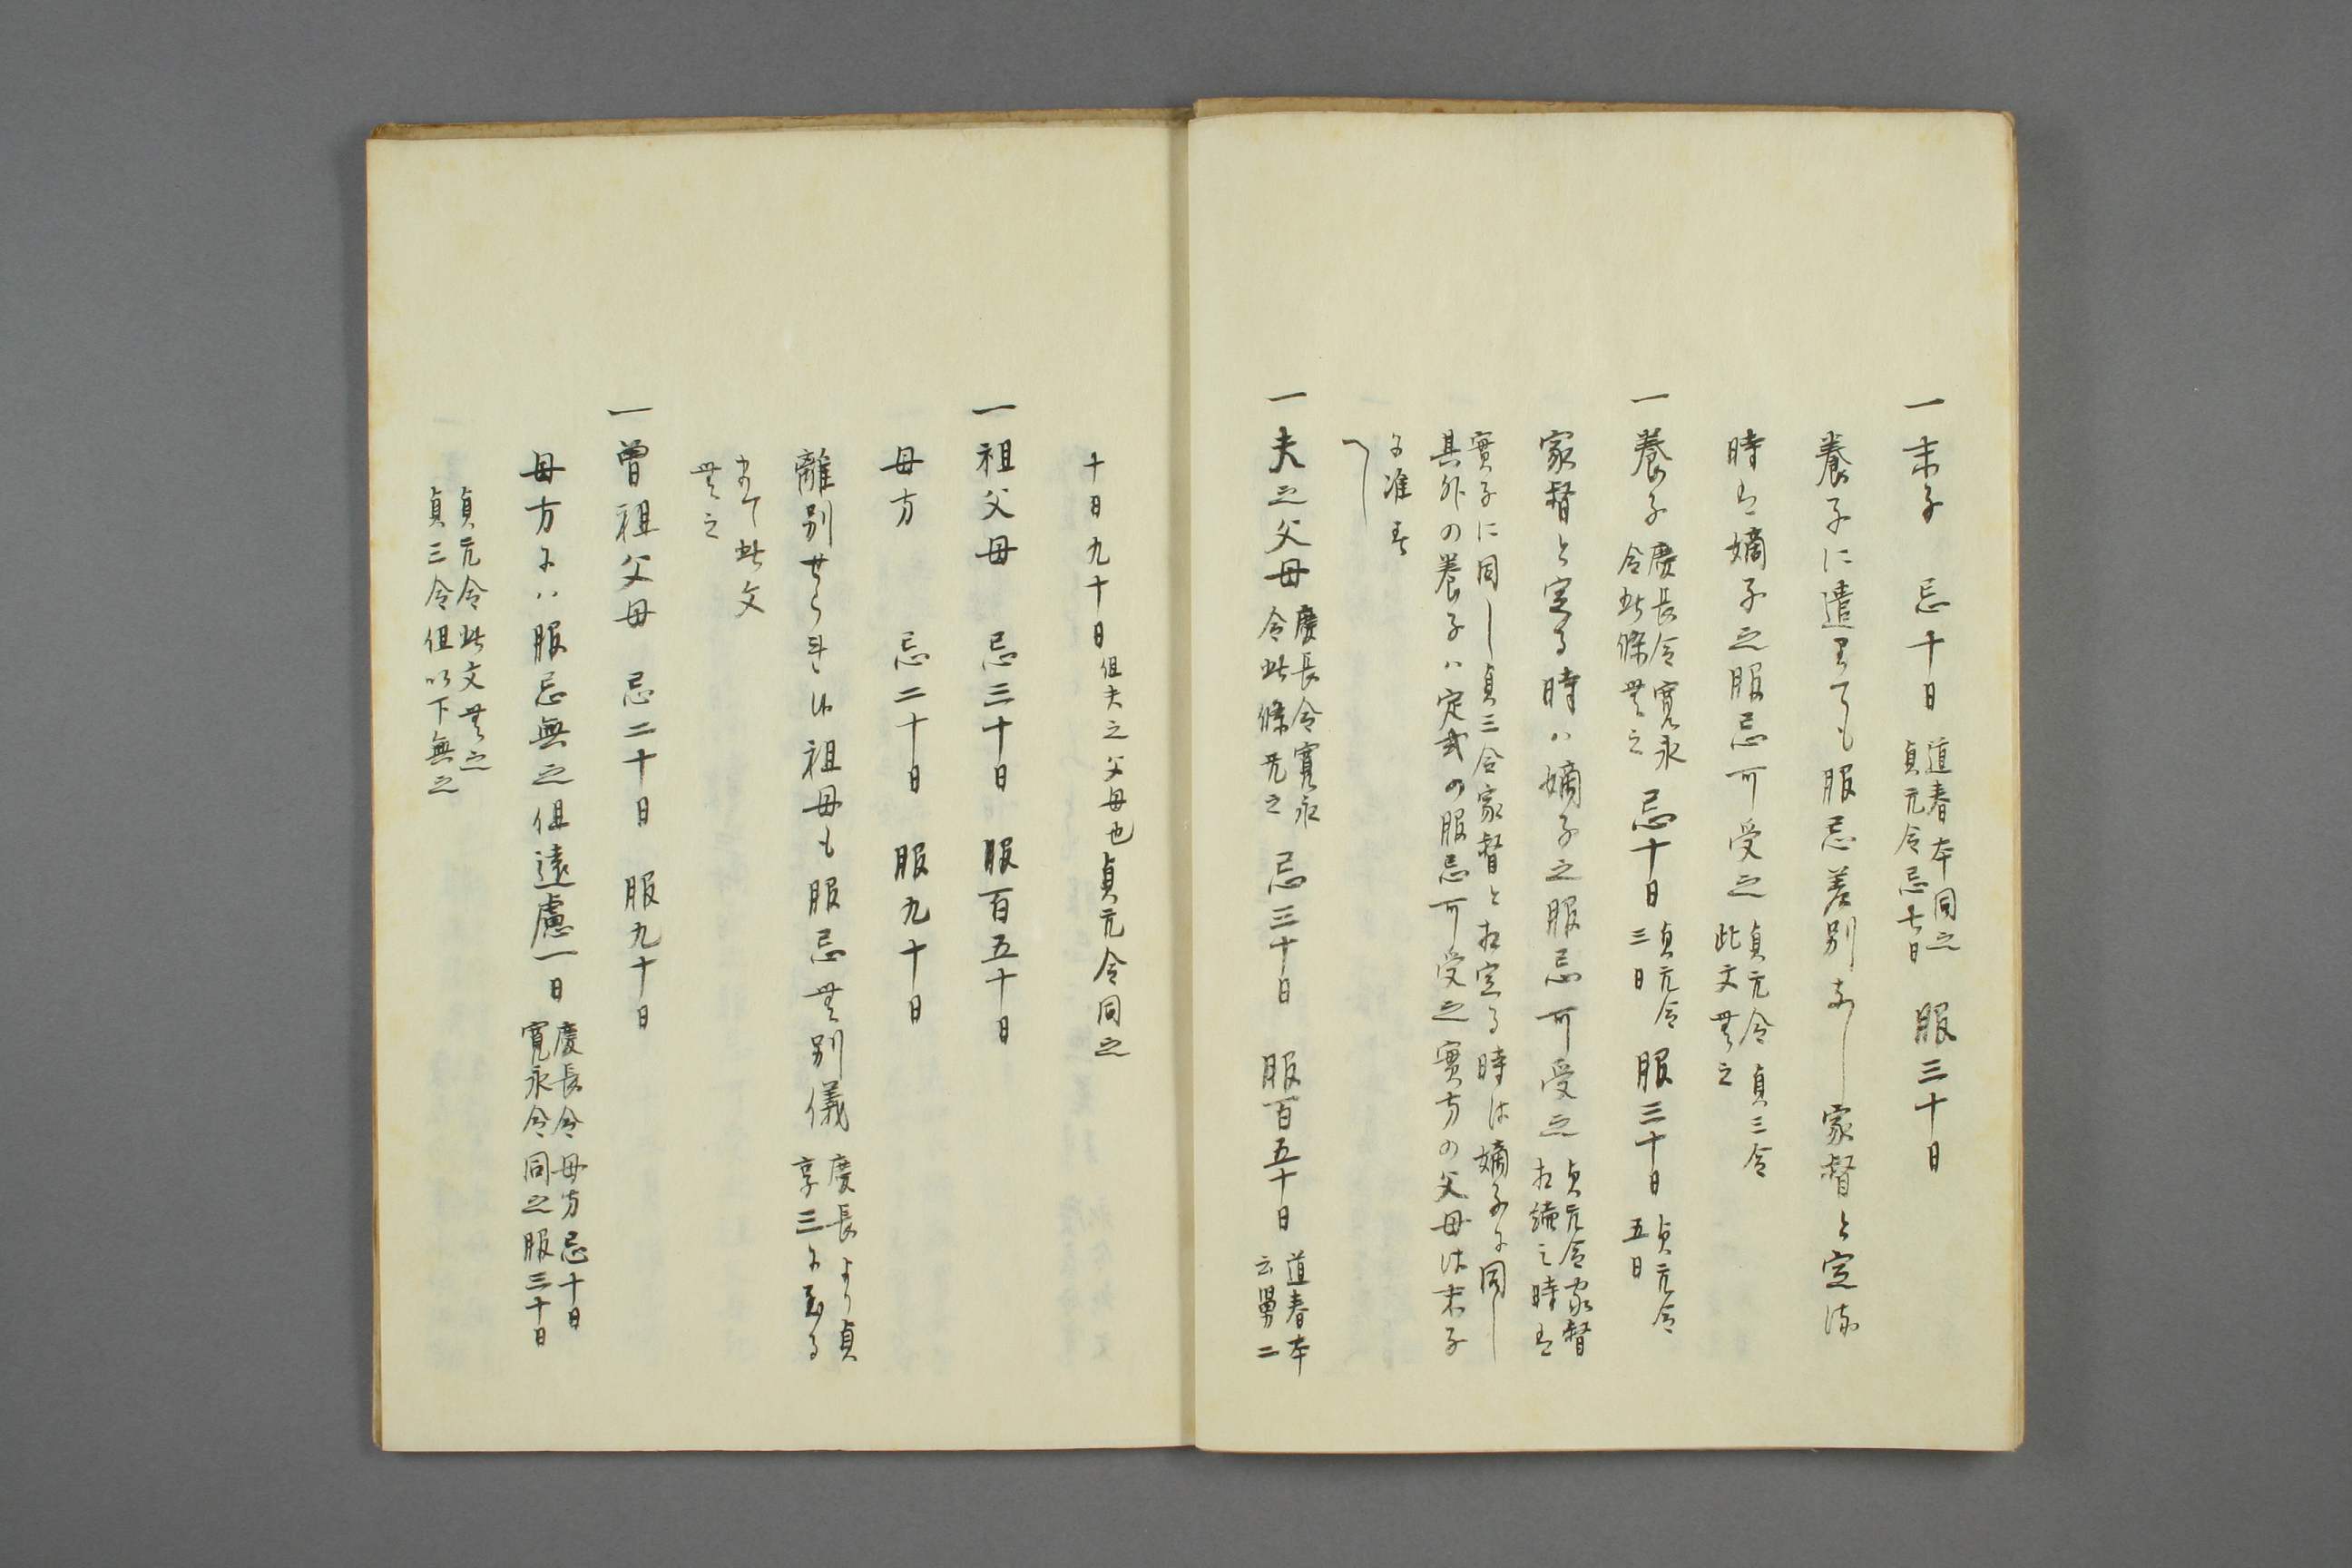 一末子　忌十日　道春本同之　服三十日
貞元令忌七日
養子に遣しても服忌差別なし家督と定る
時は嫡子之服忌可受之　貞元令貞三令
此文無之
一養子　慶長令寛永　忌十日　貞元令　服三十日　貞元令
令此條無之　三日　五日
家督と定る時ハ嫡子之服忌可受之　貞元令家督
相續之時は
實子に同し貞三令家督と相定る時は嫡子に同し
其外の養子ハ定式の服忌可受之實方の父母は末子
に准す
一夫之父母　慶長令寛永　忌三十日　服百五十日　道春本
令此條无之　云舅二
十日九十日　但夫之父母也　貞元令同之
一祖父母　忌三十日　服百五十日
母方　忌二十日　服九十日
離別せられ候祖母も服忌無別儀　慶長より貞
享三に至る
まて此文
無之
一曾祖父母　忌二十日　服九十日
母方にハ服忌無之但遠慮一日　慶長令母方忌十日
寛永令同之服三十日
貞元令此文無之
貞三令但以下無之